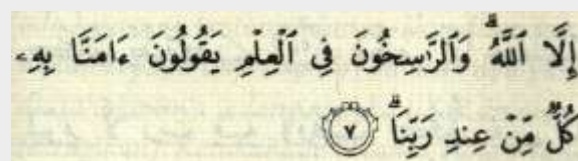 إِلَّا ٱللَّهُ ۗ وَٱلرَّٰسِخُونَ فِى ٱلْعِلْمِ يَقُولُونَ ءَامَنَّا بِهِۦ
كُلٌّ مِّنْ عِندِ رَبِّنَا ۗ ٧